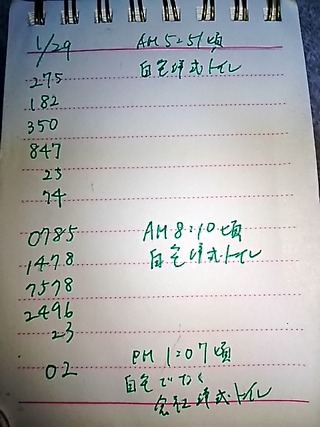 1/29 AM 5:51頃
275 自宅洋式トイレ
182
350
847
23
74
0785 AM 8:10頃
1478 自宅洋式トイレ
7578
2496
23
02 PM 1:07頃
自宅でなく
会社洋式トイレ